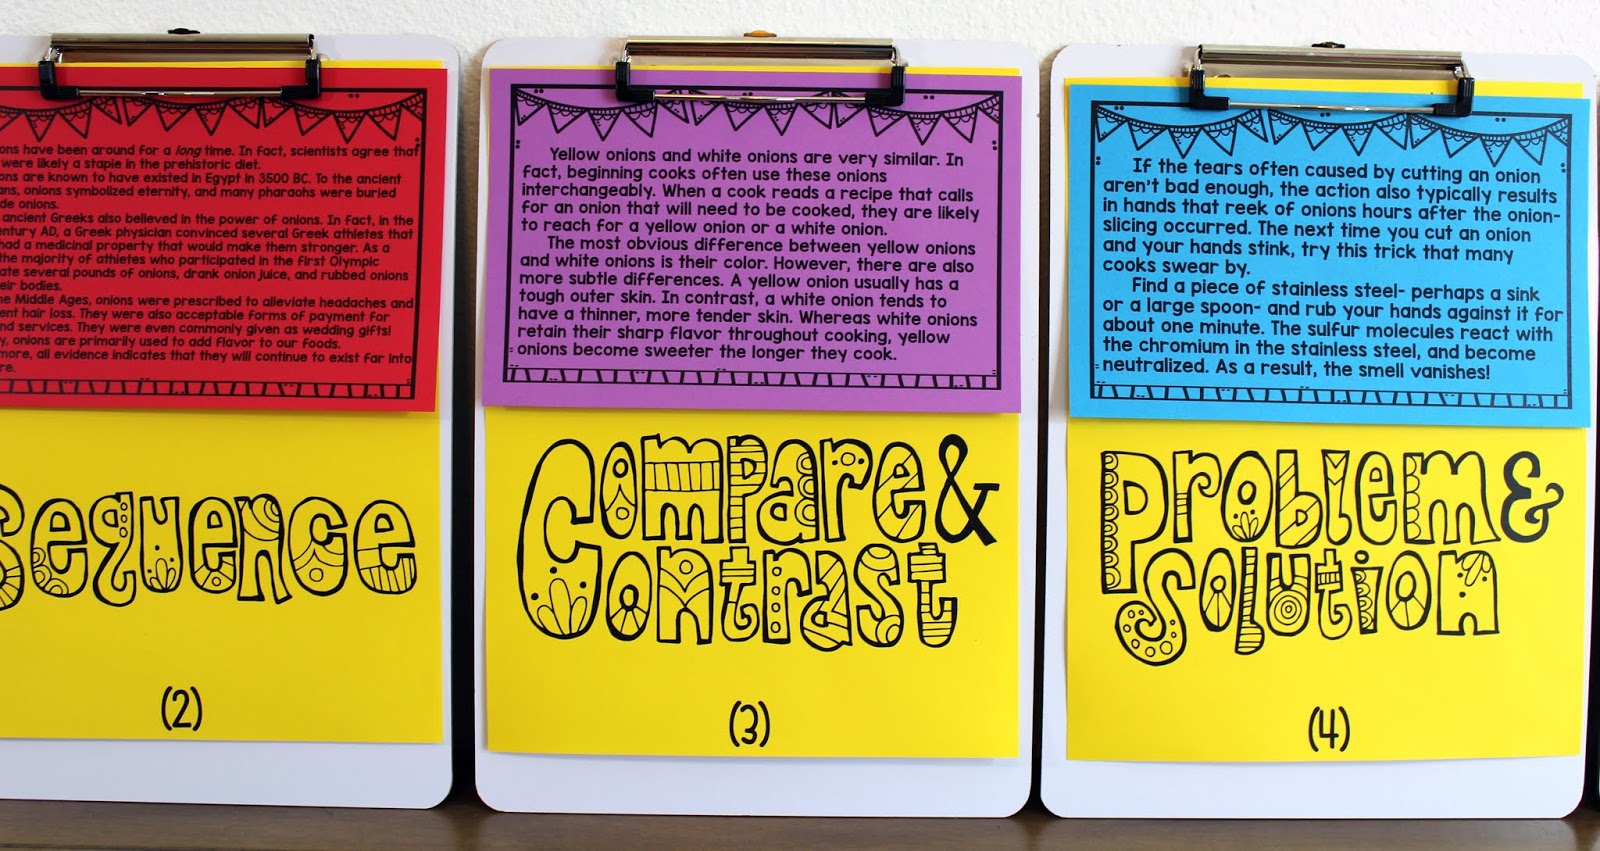 have been around for a long time. In fact, scientists agree that
were likely a staple in the prehistoric diet.
are known to have existed in Egypt in 3500 BC. To the ancient
onions symbolized eternity, and many pharaohs were buried
onions.
ancient Greeks also believed in the power of onions. In fact, in the
AD, a Greek physician convinced several Greek athletes that
had a medicinal property that would make them stronger. As a
the majority of athletes who participated in the first Olympic
ate several pounds of onions, drank onion juice, and rubbed onions
bodies.
Middle Ages, onions were prescribed to alleviate headaches and
hair loss. They were also acceptable forms of payment for
and services. They were even commonly given as wedding gifts!
onions are primarily used to add flavor to our foods.
more, all evidence indicates that they will continue to exist far into
Sequence
(2)
Yellow onions and white onions are very similar. In
fact, beginning cooks often use these onions
interchangeably. When a cook reads a recipe that calls
for an onion that will need to be cooked, they are likely
to reach for a yellow onion or a white onion.
The most obvious difference between yellow onions
and white onions is their color. However, there are also
more subtle differences. A yellow onion usually has a
tough outer skin. In contrast, a white onion tends to
have a thinner, more tender skin. Whereas white onions
retain their sharp flavor throughout cooking, yellow
onions become sweeter the longer they cook.
Compare &
Contrast
(3)
If the tears often caused by cutting an onion
aren't bad enough, the action also typically results
in hands that reek of onions hours after the onion-
slicing occurred. The next time you cut an onion
and your hands stink, try this trick that many
cooks swear by.
Find a piece of stainless steel- perhaps a sink
or a large spoon- and rub your hands against it for
about one minute. The sulfur molecules react with
the chromium in the stainless steel, and become
neutralized. As a result, the smell vanishes!
Problem &
Solution
(4)